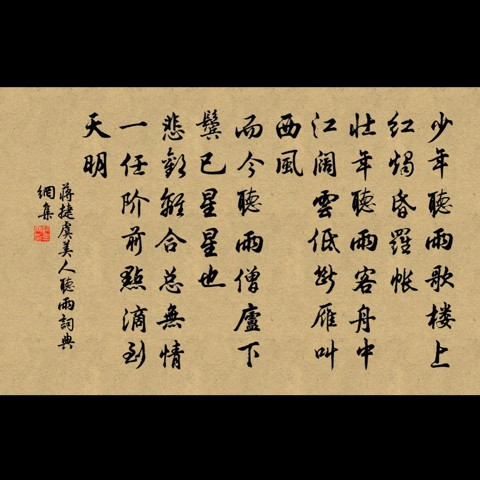 少年聽雨歌楼上
红燭昏羅帐
壮年聽雨客舟中
江阔雲低断雁叫
西風
而今聽雨僧廬下
鬓已星星也
悲歡離合总無情
一任阶前點滴到
天明
蒋捷虞美人聽雨詞典
網集